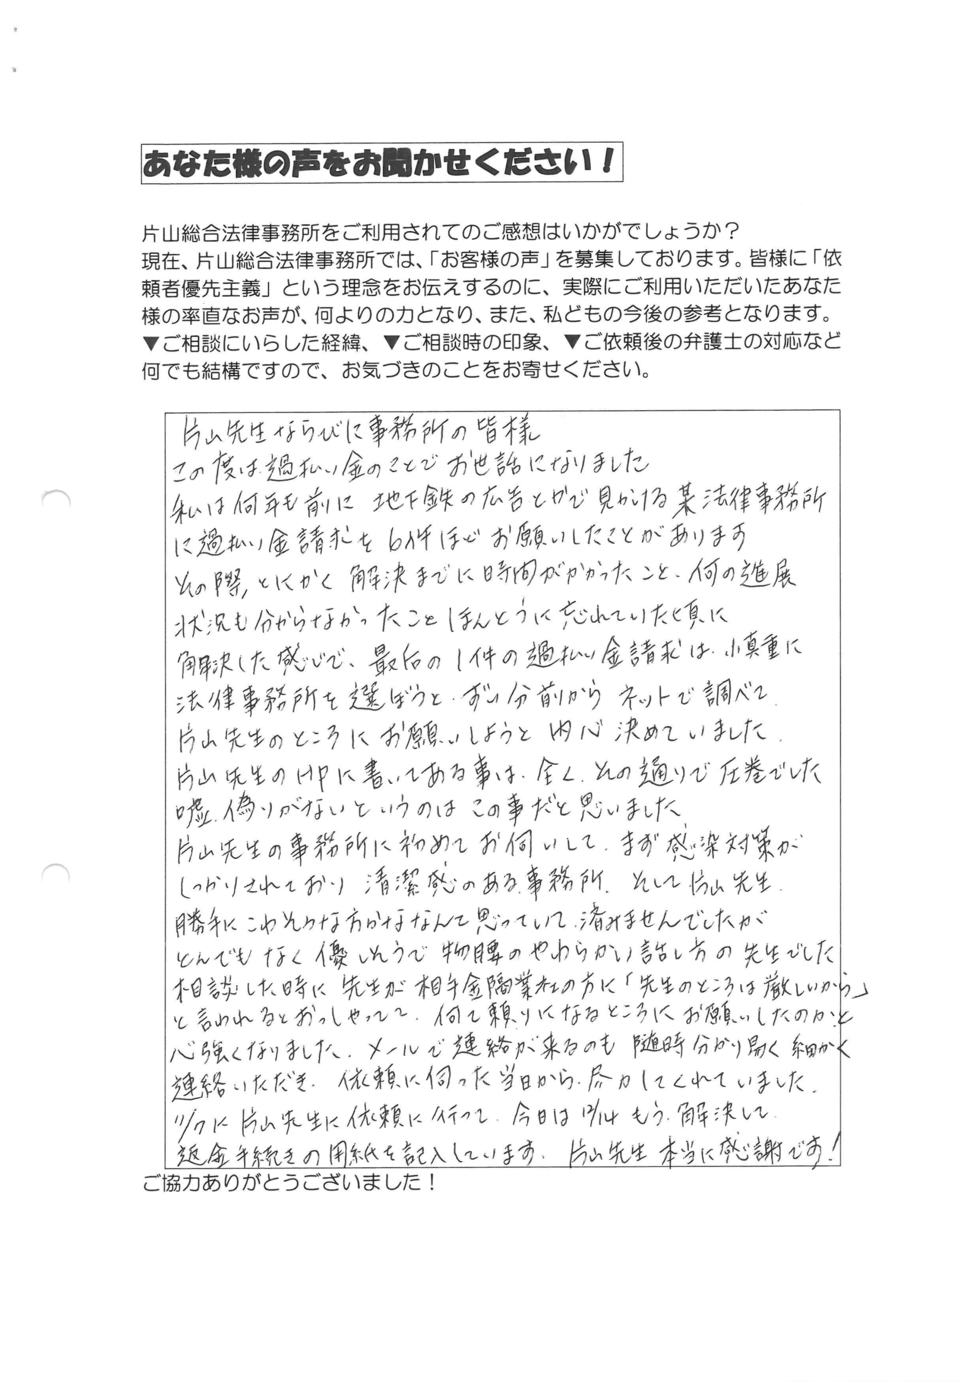 あなた様の声をお聞かせください！
片山総合法律事務所をご利用されてのご感想はいかがでしょうか？
現在、片山総合法律事務所では、「お客様の声」を募集しております。皆様に「依
頼者優先主義」という理念をお伝えするのに、実際にご利用いただいたあなた
様の率直なお声が、何よりの力となり、また、私どもの今後の参考となります。
▼ご相談にいらした経緯、▼ご相談時の印象、▼ご依頼後の弁護士の対応など
何でも結構ですので、お気づきのことをお寄せください。
片山先生ならびに事務所の皆様
この度は過払い金のことでお世話になりました
私は何年も前に地下鉄の広告とかで見かける某法律事務所
に過払い金請求を6件ほどお願いしたことがあります
その際、とにかく解決までに時間がかかったこと、何の進展
状況も分からなかったこと ほんとうに忘れていた頃に
解決した感じで、最后の1件の過払い金請求は、慎重に
法律事務所を選ぼうと、ずい分前からネットで調べて、
片山先生のところにお願いしようと内心決めていました、
片山先生のHPに書いてある事は、全く、その通りで圧巻でした
嘘、偽りがないというのはこの事だと思いました
片山先生の事務所に初めてお伺いして、まず感染対策が
しっかりされており 清潔感のある事務所、そして片山先生、
勝手にこわそうな方かななんて思っていて、済みませんでしたが
とんでもなく優しそうで物腰のやわらかい話し方の先生でした
相談した時に先生が相手金融業社の方に「先生のところは厳しいから」
と言われるとおっしゃってて、何て頼りになるところにお願いしたのかと
心強くなりました、メールで連絡が来るのも随時分かり易く細かく
連絡いただき、依頼に伺った当日から、尽力してくれていました、
11/7に片山先生に依頼に行って、今日は12/14もう、解決して、
返金手続きの用紙を記入しています、片山先生 本当に感謝です！
ご協力ありがとうございました！